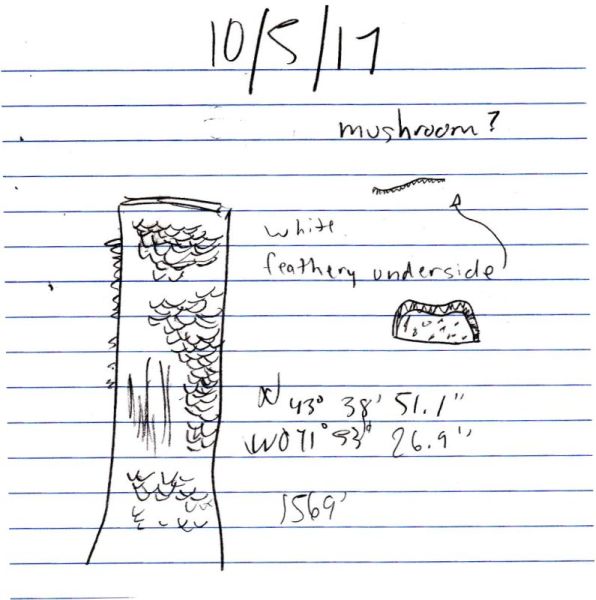 10/5/17
mushroom?
white
feathery underside
N 43° 38' 51.1"
W071° 53' 26.9"
1569'